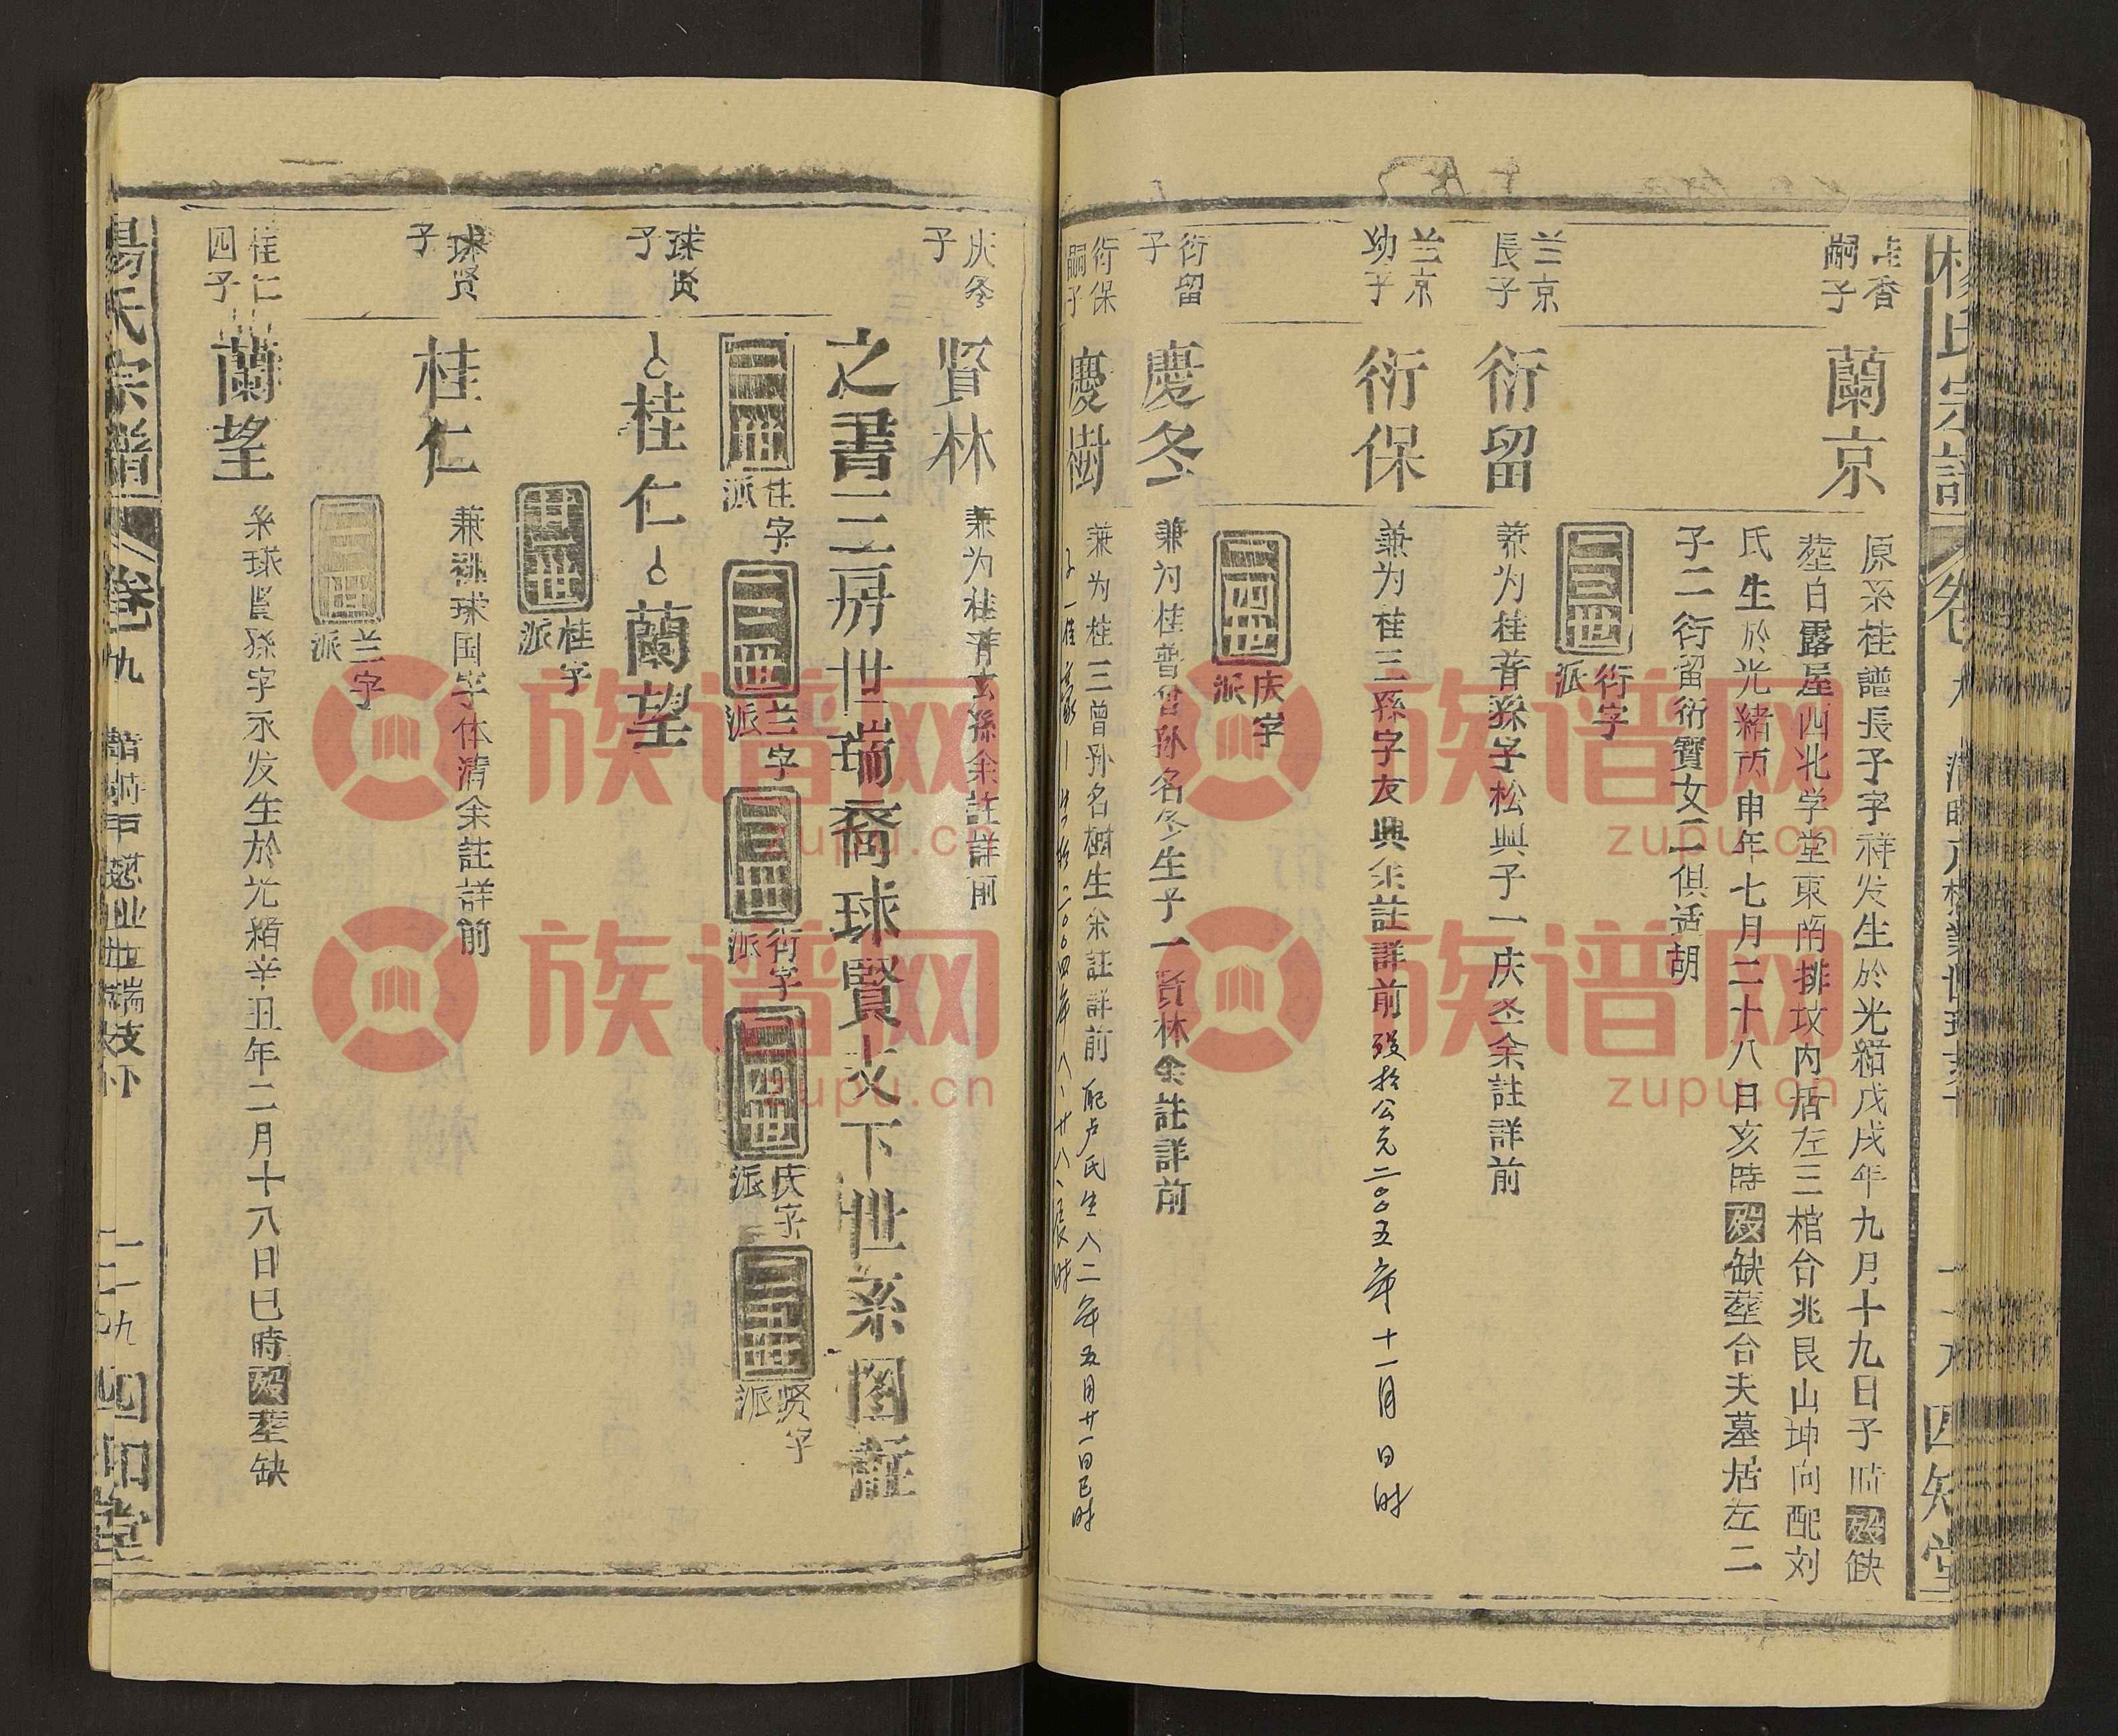 桂香
嗣子
蘭京
原系桂譜長子字祥发生於光緒戊戌年九月十九日子時殁缺
葬白露屋西北学堂東南排坟内居左三棺合兆艮山坤向配刘
氏生於光緒丙申年七月二十八日亥時殁缺葬合夫墓居左二
子二衍留衍寶女二俱适胡
衍字
派
兰京
長子
衍留
兼为桂普孫字松興子一庆冬余註詳前
兰京
幼子
衍保
兼为桂三孫字友興余註詳前 殁於公元二〇〇五年十一月 日时
二四世
庆字
派
衍留
子
慶冬
兼为桂普曾孙名冬生子一賢林余註詳前
衍保
嗣子
慶樹
兼为桂三曾孙名樹生余註詳前 配卢氏生八二年五月廿一日巳时
庆冬
子
賢林
兼为桂普玄孫余註詳前
之書三房世瑞裔球賢支下世系图註
桂字
派
兰字
派
衍字
派
庆字
派
贤字
派
球贤
子
桂仁
蘭望
桂字
派
球贤
子
桂仁
兼祧球国字体清余註詳前
兰字
派
桂仁
四子
蘭望
系球賢孫字永发生於光緒辛丑年二月十八日巳時殁葬缺
楊氏宗譜
卷九
四知堂
族谱网
zupu.cn
族谱网
zupu.cn
族谱网
zupu.cn
族谱网
zupu.cn